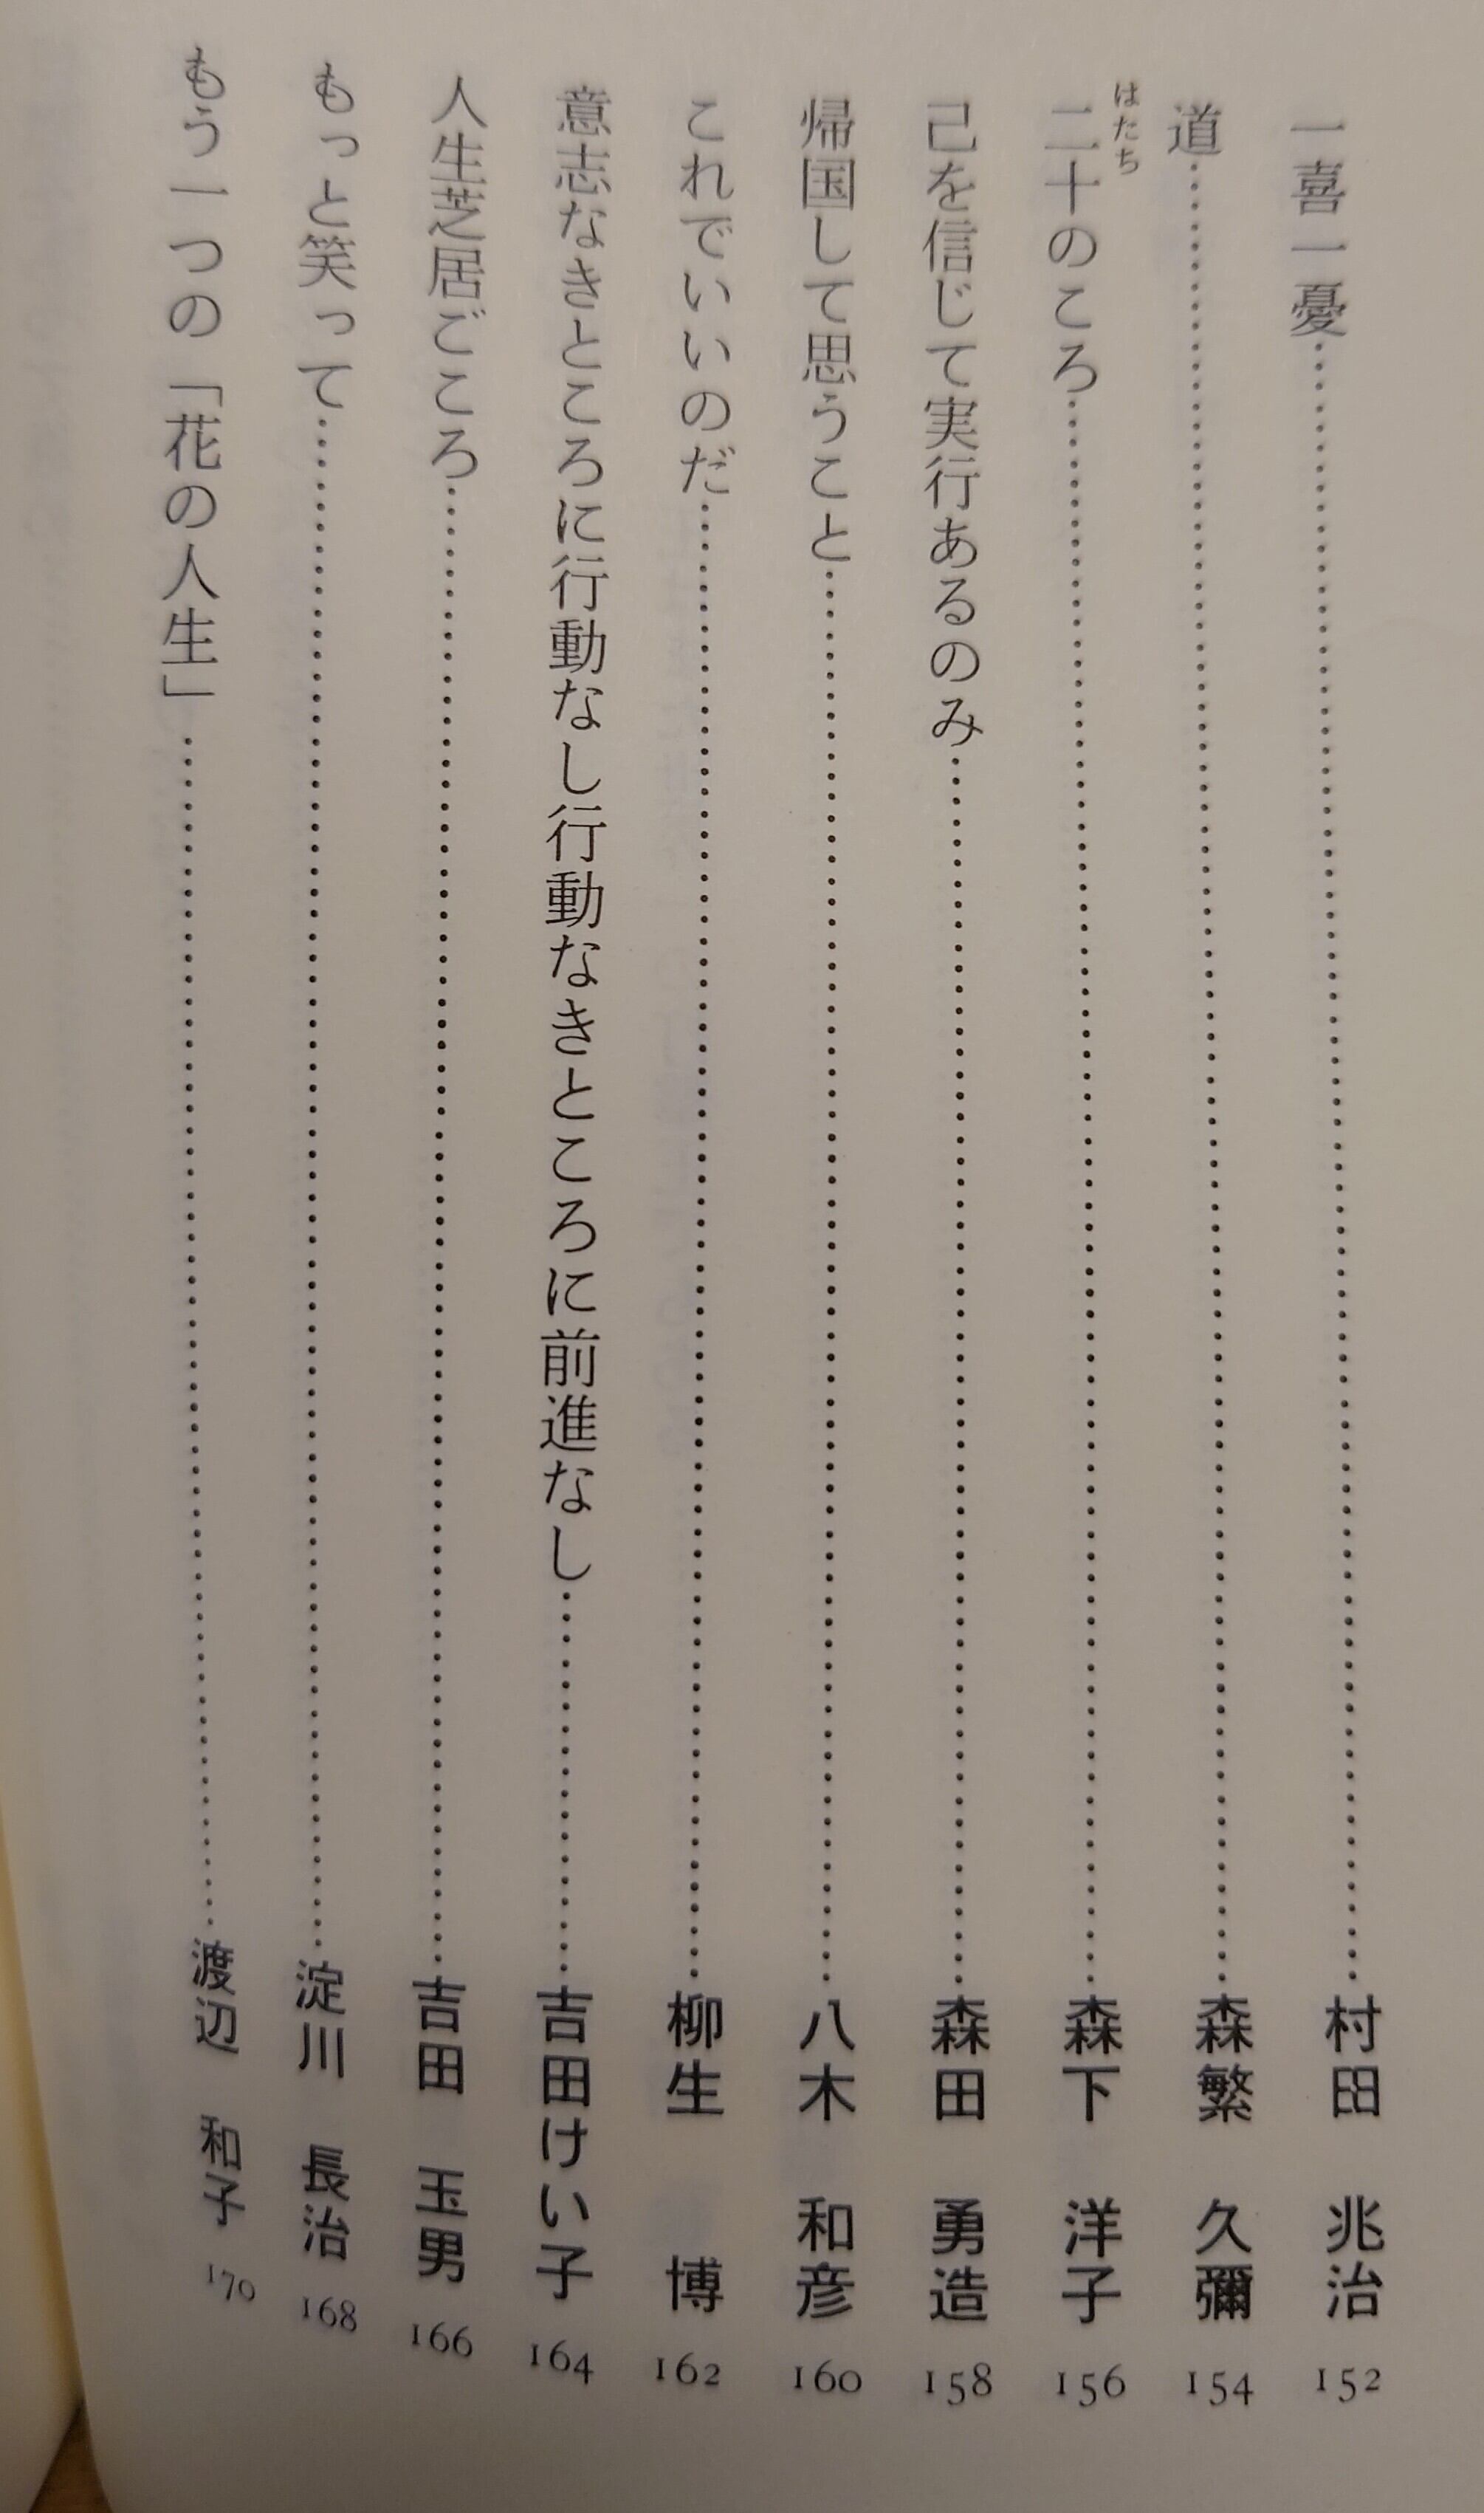 一喜一憂……………村田 兆治 152
道……………森繁 久彌 154
はたち
二十のころ……………森下 洋子 156
己を信じて実行あるのみ……………森田 勇造 158
帰国して思うこと……………八木 和彦 160
これでいいのだ……………柳生 博 162
意志なきところに行動なし行動なきところに前進なし……………吉田けい子 164
人生芝居ごころ……………吉田 玉男 166
もっと笑って……………淀川 長治 168
もう一つの「花の人生」……………渡辺 和子 170